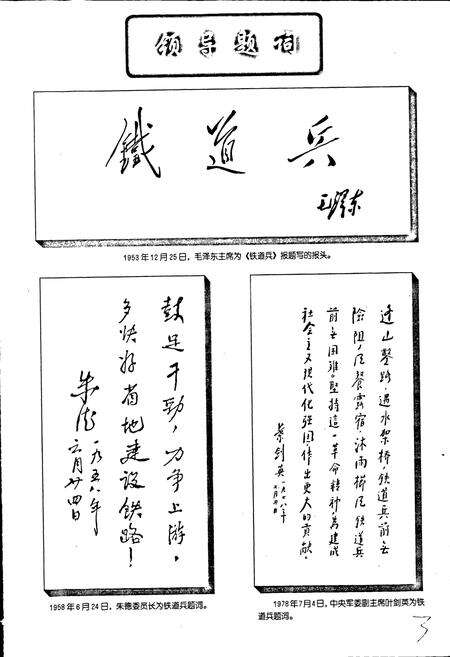 领导题词
鐵道兵
毛澤东
1953年12月25日，毛泽东主席为《铁道兵》报题写的报头。
鼓足干勁，力争上游，
多快好省地建设铁路！
朱德
一九五八年
六月廿四日
1958年6月24日，朱德委员长为铁道兵题词。
逢山鑿路，遇水架桥，铁道兵前无
险阻；风餐露宿，沐雨栉风，铁道兵
前无困难。坚持這一革命精神，为建成
社会主义现代化强国，作出更大的贡献。
葉剑英 一九七八年
七月四日
1978年7月4日，中央军委副主席叶剑英为铁
道兵题词。
3